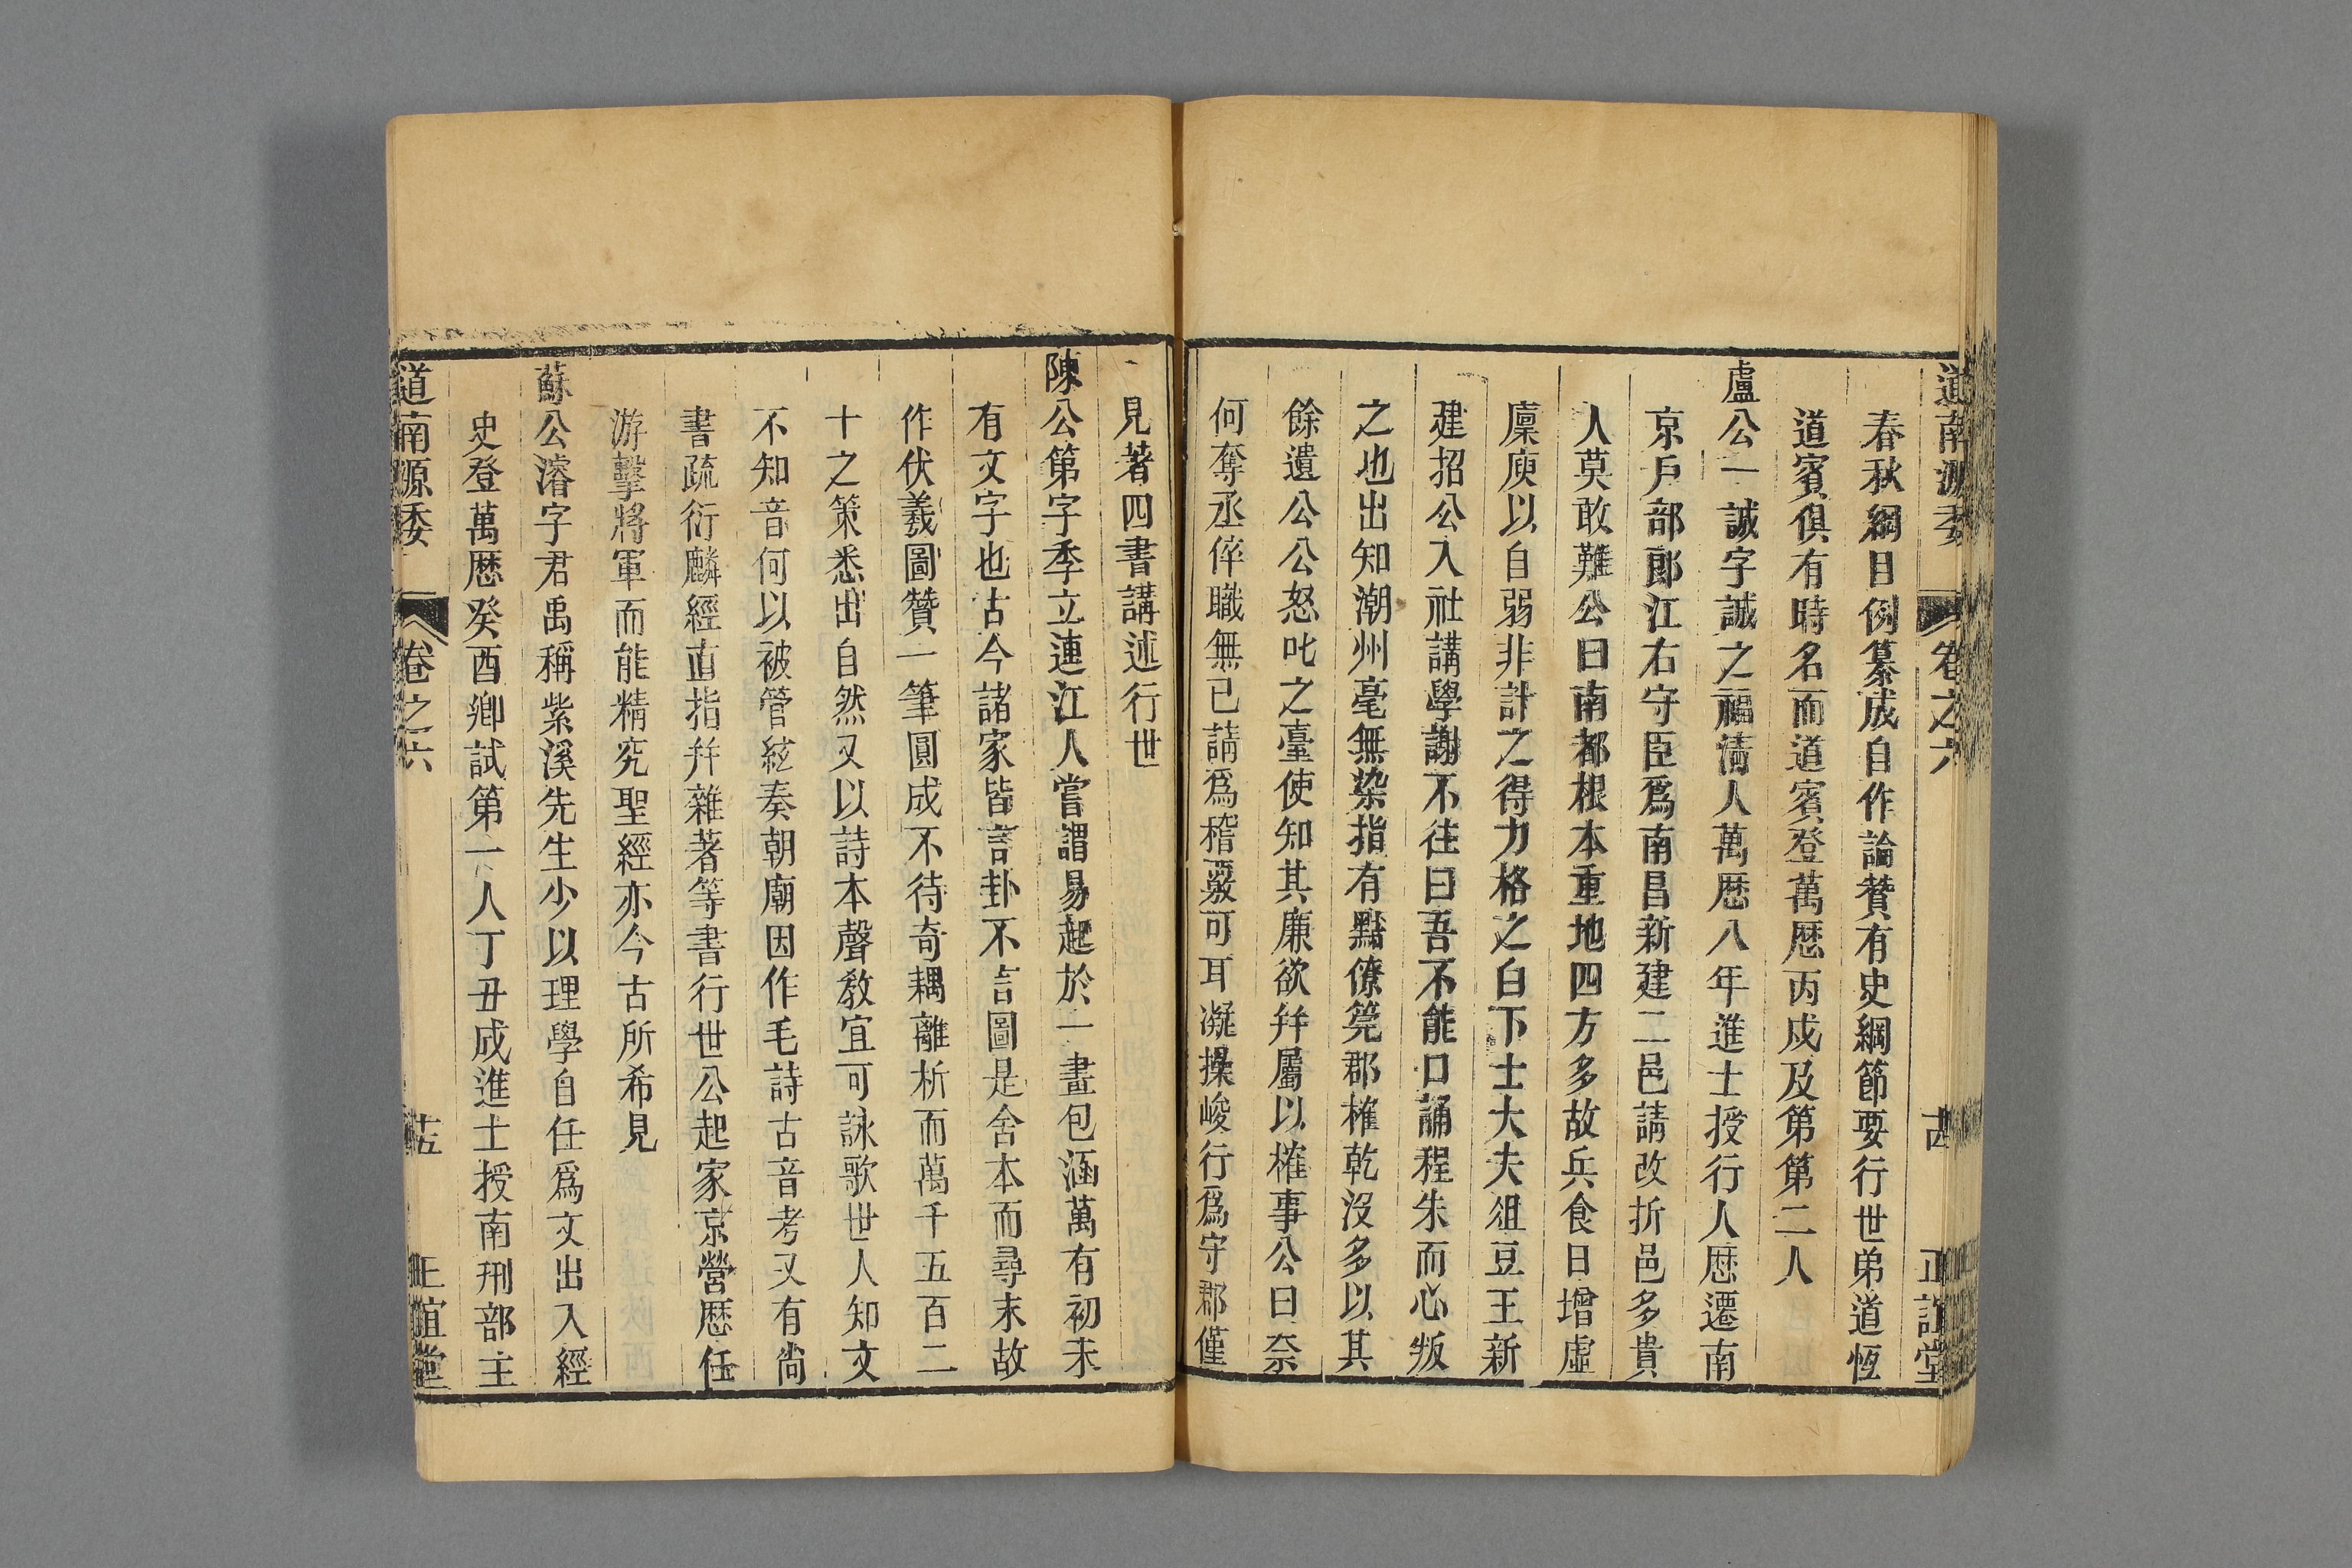 道南源委 卷之六 十四 正誼堂
春秋綱目例纂成自作論贊有史綱節要行世弟道恆
道賓俱有時名而道賓登萬歷丙戌及第第二人
盧公一誠字誠之福清人萬歷八年進士授行人歷遷南
京戶部郎江右守臣爲南昌新建二邑請改折邑多貴
人莫敢難公曰南都根本重地四方多故兵食日增虛
廩庾以自弱非計之得力格之白下士大夫俎豆王新
建招公入社講學謝不往曰吾不能口誦程朱而心叛
之也出知潮州毫無染指有黠僚筦郡榷乾沒多以其
餘遺公公怒叱之臺使知其廉欲幷屬以榷事公曰奈
何奪丞倅職無已請爲稽覈可耳凝操峻行爲守郡僅
見著四書講述行世
陳公第字季立連江人嘗謂易起於一畫包涵萬有初未
有文字也古今諸家皆言卦不言圖是舍本而尋末故
作伏羲圖贊一筆圓成不待奇耦離析而萬千五百二
十之策悉出自然又以詩本聲教宜可詠歌世人知文
不知音何以被管絃奏朝廟因作毛詩古音考又有尚
書疏衍麟經直指幷雜著等書行世公起家京營歷任
游擊將軍而能精究聖經亦今古所希見
蘇公濬字君禹稱紫溪先生少以理學自任爲文出入經
史登萬歷癸酉鄉試第一人丁丑成進士授南刑部主
道南源委 卷之六 十五 正誼堂